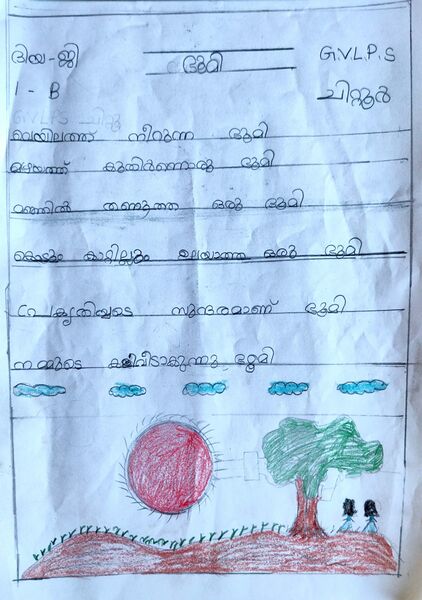 ദിയ-ജി
ഭൂമി
G.V.L.P.S
I - B
ചിറ്റൂർ
G.V.L.P.S ചിറ്റൂ
വെയിലത്ത് നീറുന്ന ഭൂമി
മഴയത്ത് കുതിർന്നൊരു ഭൂമി
മഞ്ഞിൽ തണുത്ത ഒരു ഭൂമി
കൊടും കാറ്റിലും ഉലയാത്ത ഒരു ഭൂമി
പ്രകൃതിയുടെ സുന്ദരമാണ് ഭൂമി
നമ്മുടെ കളിവീടാകുന്നു ഭൂമി